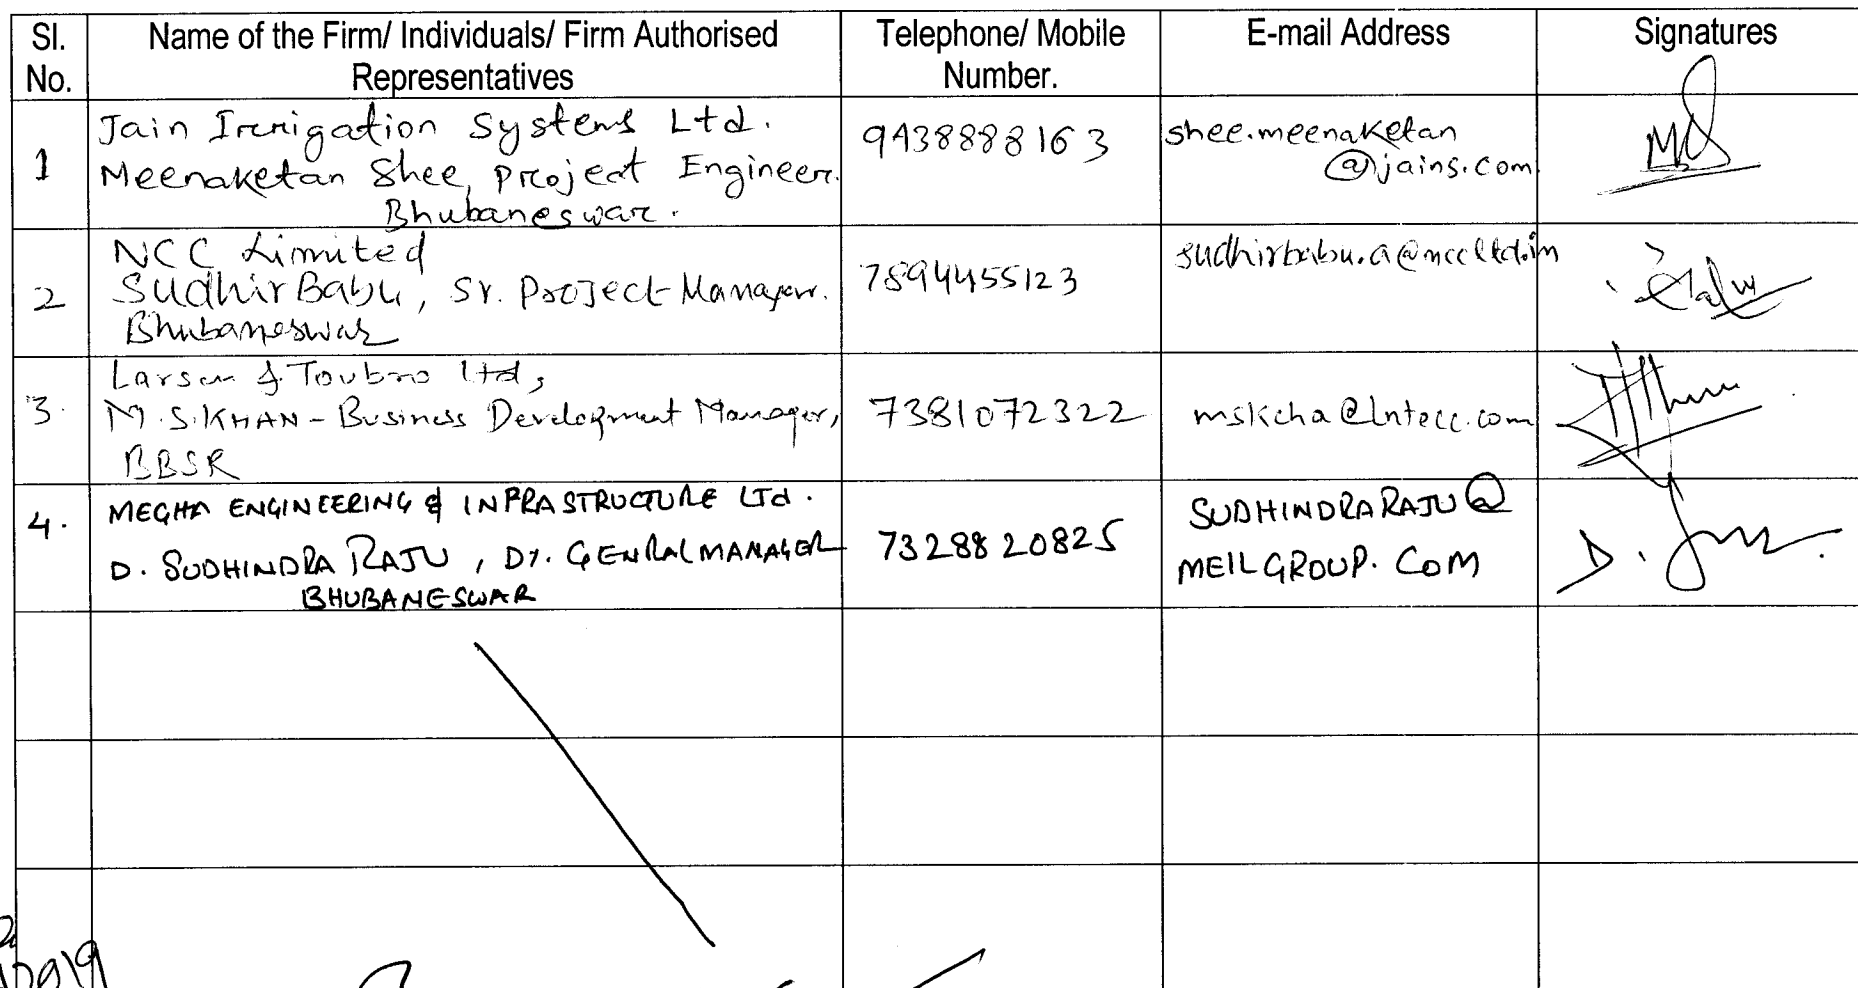 Sl. No.
Name of the Firm/ Individuals/ Firm Authorised Representatives
Telephone/ Mobile Number.
E-mail Address
Signatures
1
Jain Irrigation Systems Ltd.
Meenaketan Shee, Project Engineer.
Bhubaneswar.
9438888163
shee.meenaketan
@jains.com
2
NCC Limited
Sudhir Babu, Sr. Project Manager.
Bhubaneswar
7894455123
sudhirbabu.a@nccltd.in
3.
Larsen & Toubro Ltd,
M.S.KHAN - Business Development Manager,
BBSR
7381072322
mskcha@lntecc.com
4.
MEGHA ENGINEERING & INFRASTRUCTURE LTd.
D. SUDHINDRA RAJU, Dy. GENRAL MANAGER
BHUBANESWAR
7328820825
SUDHINDRARAJU@
MEILGROUP.COM
D.